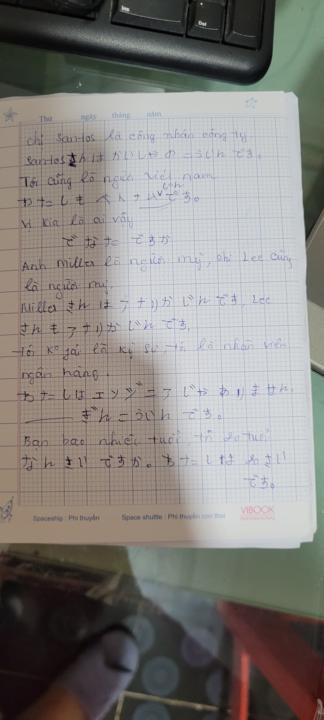 Thứ ngày tháng năm
chị Santos là công nhân công ty.
Santos さんは かいしゃ の こういん です。
Tôi cũng là người Việt nam
わたしも ベトナム じん です。
Vị kia là ai vậy
で なた ですか
Anh Miller là người mỹ, chị Lee cũng
là người mỹ.
Miller さん は アナリカ じん です, Lee
さん も アナリカ じん です,
Tôi ko phải là kỹ sư, tôi là nhân viên
ngân hàng.
わたしは エンジニア じゃ ありません,
ぎんこういん です。
Bạn bao nhiêu tuổi tôi 20 tuổi
なんさい ですか。 わたしは 20 さい
です。
Spaceship : Phi thuyền Space shuttle : Phi thuyền con thoi VIBOOK